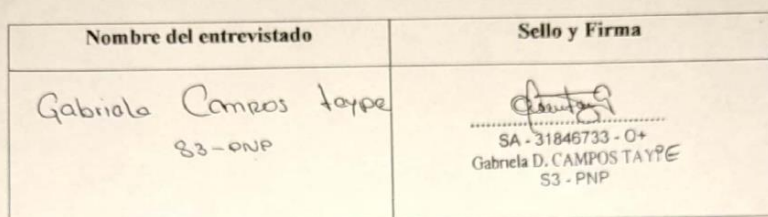 Nombre del entrevistado
Sello y Firma
Gabriela Campos taype
S3-PNP
SA - 31846733 - O+
Gabriela D. CAMPOS TAYPE
S3 - PNP